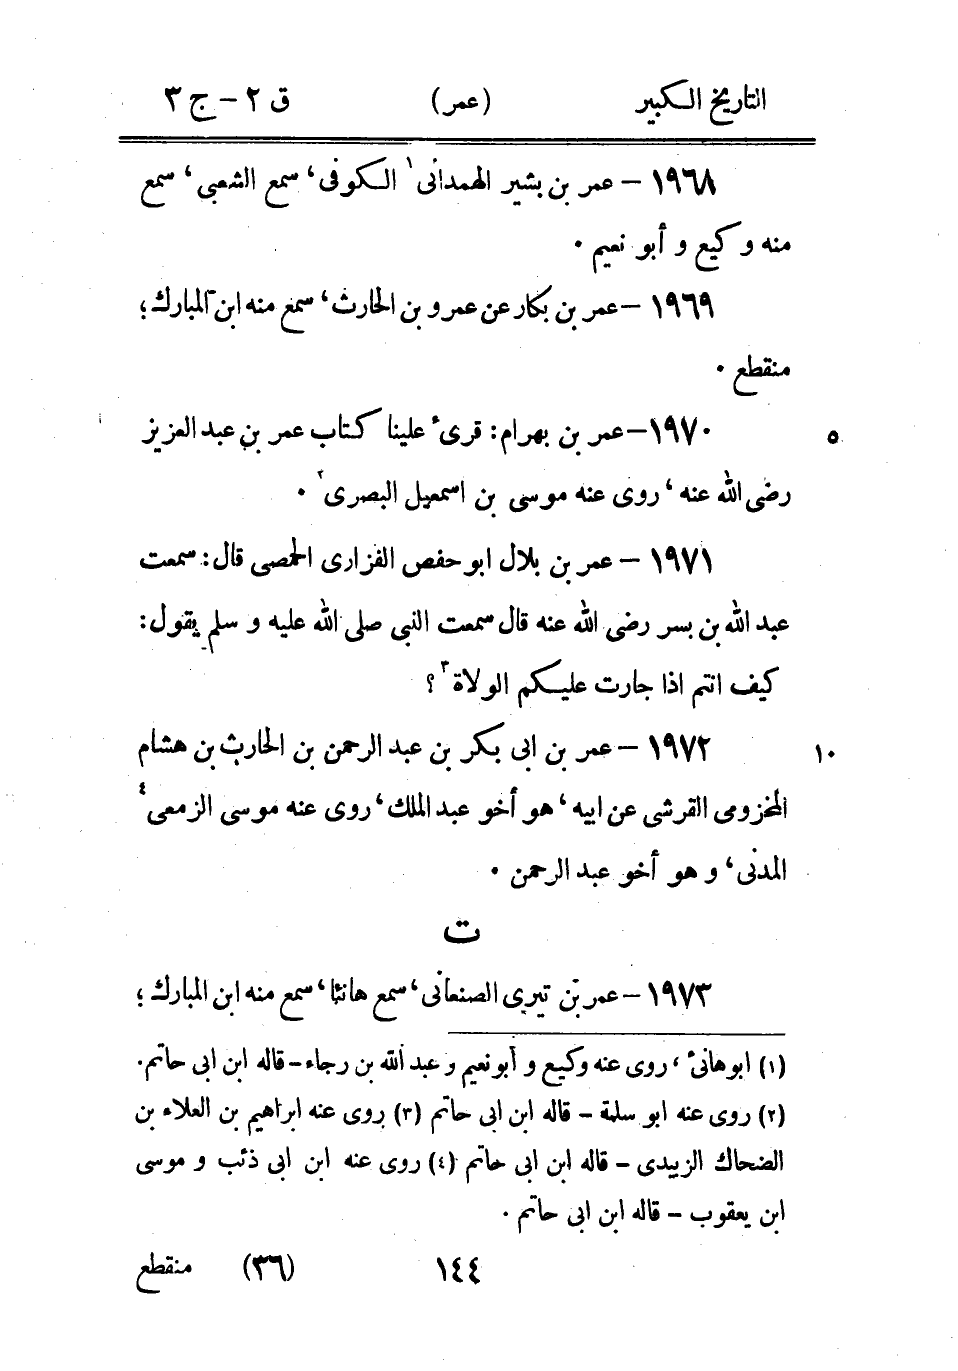 التاريخ الكبير (عمر) ق ٢ – ج ٣
١٩٦٨ – عمر بن بشير الهمدانى١ الكوفى، سمع الشعبى، سمع
منه وكيع و أبو نعيم .
١٩٦٩ – عمر بن بكار عن عمرو بن الحارث، سمع منه ابن المبارك؛
منقطع .
١٩٧٠ – عمر بن بهرام: قرئ علينا كتاب عمر بن عبد العزيز ٥
رضى الله عنه، روى عنه موسى بن اسمعيل البصرى٢ .
١٩٧١ – عمر بن بلال ابو حفص الفزارى الحمصى قال: سمعت
عبد الله بن بسر رضى الله عنه قال سمعت النبى صلى الله عليه و سلم يقول:
كيف انتم اذا جارت عليكم الولاة٣ ؟
١٩٧٢ – عمر بن ابى بكر بن عبد الرحمن بن الحارث بن هشام ١٠
المخزومى القرشى عن ابيه، هو أخو عبد الملك، روى عنه موسى الزمعى٤
المدنى، و هو أخو عبد الرحمن .
ت
١٩٧٣ – عمر بن تيرى الصنعانى، سمع هانئا، سمع منه ابن المبارك؛
(١) ابو هانئ، روى عنه وكيع و أبو نعيم و عبد الله بن رجاء – قاله ابن ابى حاتم.
(٢) روى عنه ابو سلمة – قاله ابن ابى حاتم (٣) روى عنه ابراهيم بن العلاء بن
الضحاك الزبيدى – قاله ابن ابى حاتم (٤) روى عنه ابن ابى ذئب و موسى
ابن يعقوب – قاله ابن ابى حاتم .
١٤٤ (٣٦) منقطع